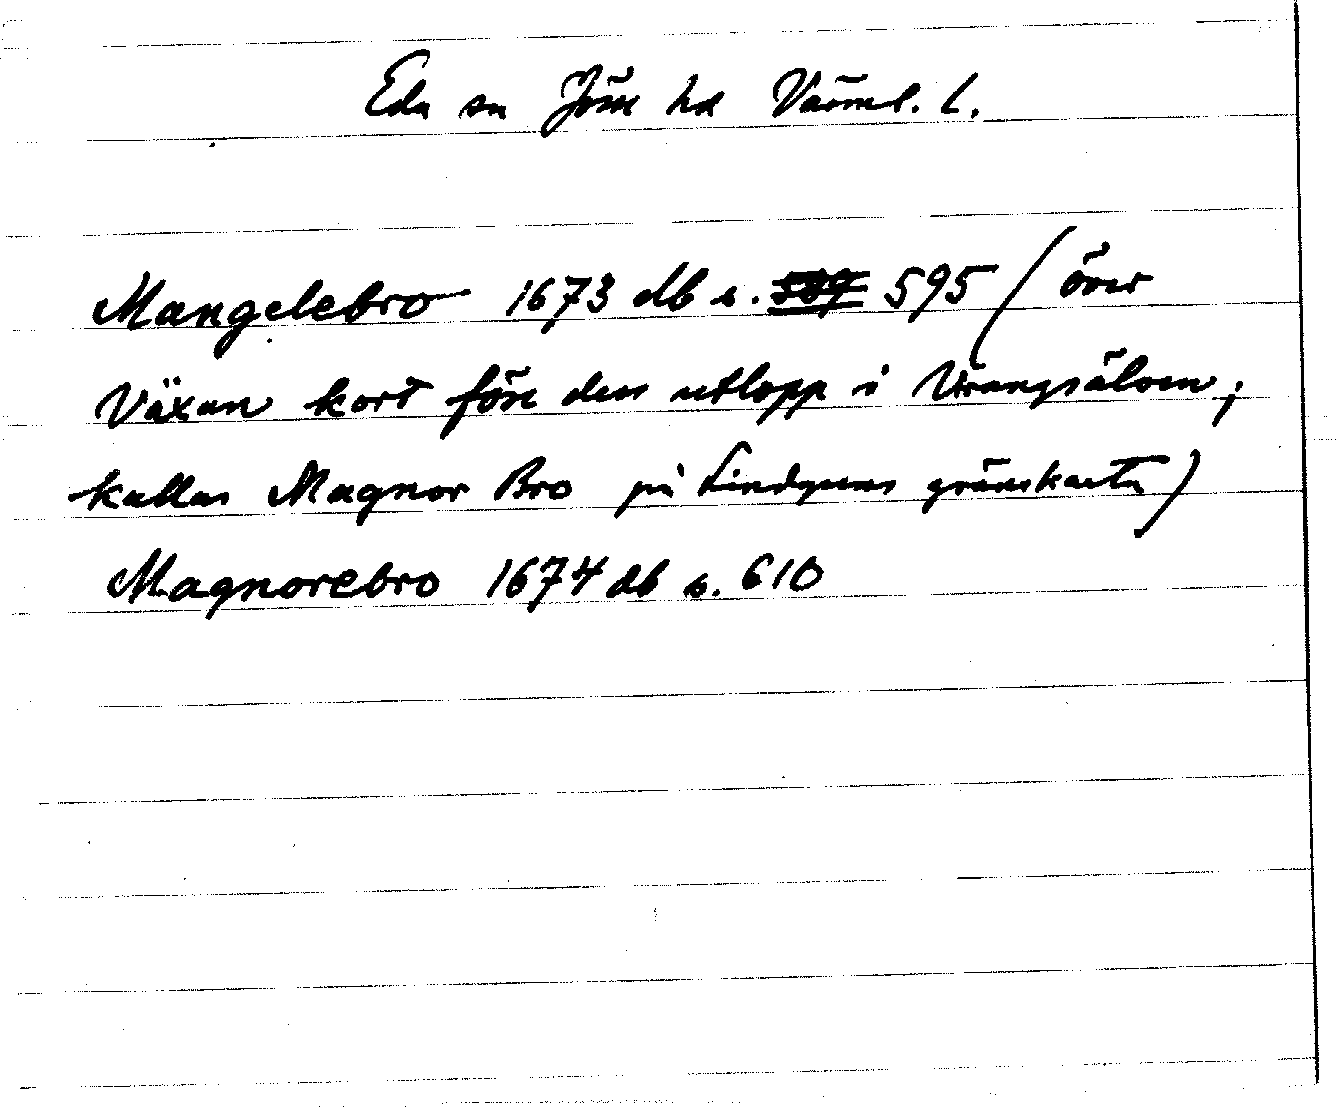 Eda sn Jösse hd Värml. l.
Mangelebro 1673 db s. 595 (över
Växan kort före dess utlopp i Vrångsälven;
kallas Magnor Bro på Lindgrens gränskarta)
Magnorebro 1674 db s. 610